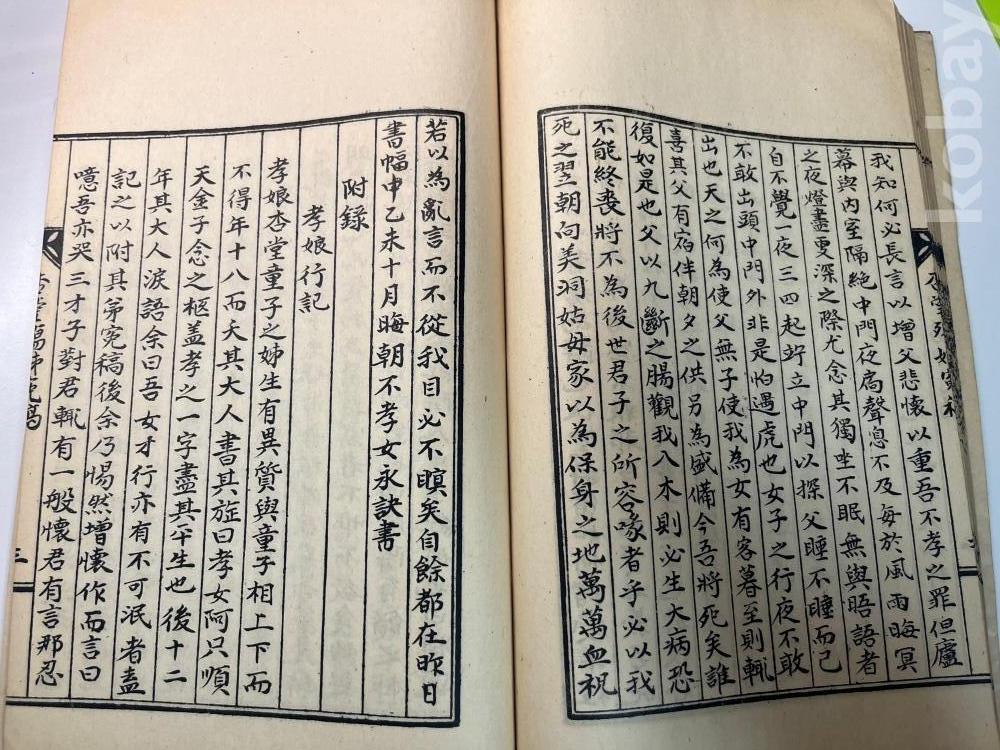 我知何必長言以增父悲懷以重吾不孝之罪但廬
幕與內室隔絶中門夜扃聲息不及每於風雨晦冥
之夜燈盡更深之際尤念其獨坐不眠無與晤語者
自不覺一夜三四起竚立中門以探父睡不睡而已
不敢出頭中門外非是怕遇虎也女子之行夜不敢
出也天之何為使父無子使我為女有客暮至則輒
喜其父有宿伴朝夕之供另為盛備今吾將死矣誰
復如是也父以九斷之腸觀我入木則必生大病恐
不能終喪將不為後世君子之所容喙者乎必以我
死之翌朝向美洞姑母家以為保身之地萬萬血祝
若以為亂言而不從我目必不瞑矣自餘都在昨日
書幅中乙未十月晦朝不孝女永訣書
附錄
孝娘行記
孝娘杏堂童子之姊生有異質與童子相上下而
不得年十八而夭其大人書其旌曰孝女阿只順
天金子念之柩盖孝之一字盡其平生也後十二
年其大人淚語余曰吾女才行亦有不可泯者盍
記之以附其弟寃稿後余乃惕然增懷作而言曰
噫吾亦哭三才子對君輒有一般懷君有言那忍
三
kobay